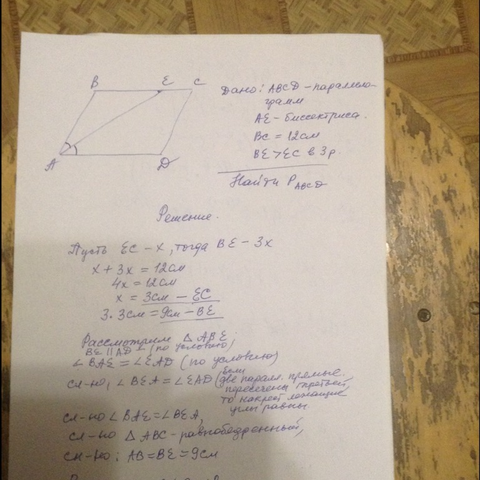 B E C
A D
Дано: ABCD - паралле-
грамм
AE - биссектриса.
BC = 12см
BE > EC в 3 р.
Найти P ABCD
Решение.
Пусть EC - x, тогда BE - 3x
x + 3x = 12см
4x = 12см
x = 3см - EC
3 · 3см = 9см - BE
Рассмотрим △ ABE:
BE || AD (по условию)
∠ BAE = ∠ EAD (по условию)
сл-но, ∠ BEA = ∠ EAD (если
две паралл. прямые
пересечены третьей,
то накрест лежащие
углы равны
сл-но ∠ BAE = ∠ BEA,
сл-но △ ABC - равнобедренный,
сл-но: AB = BE = 9см